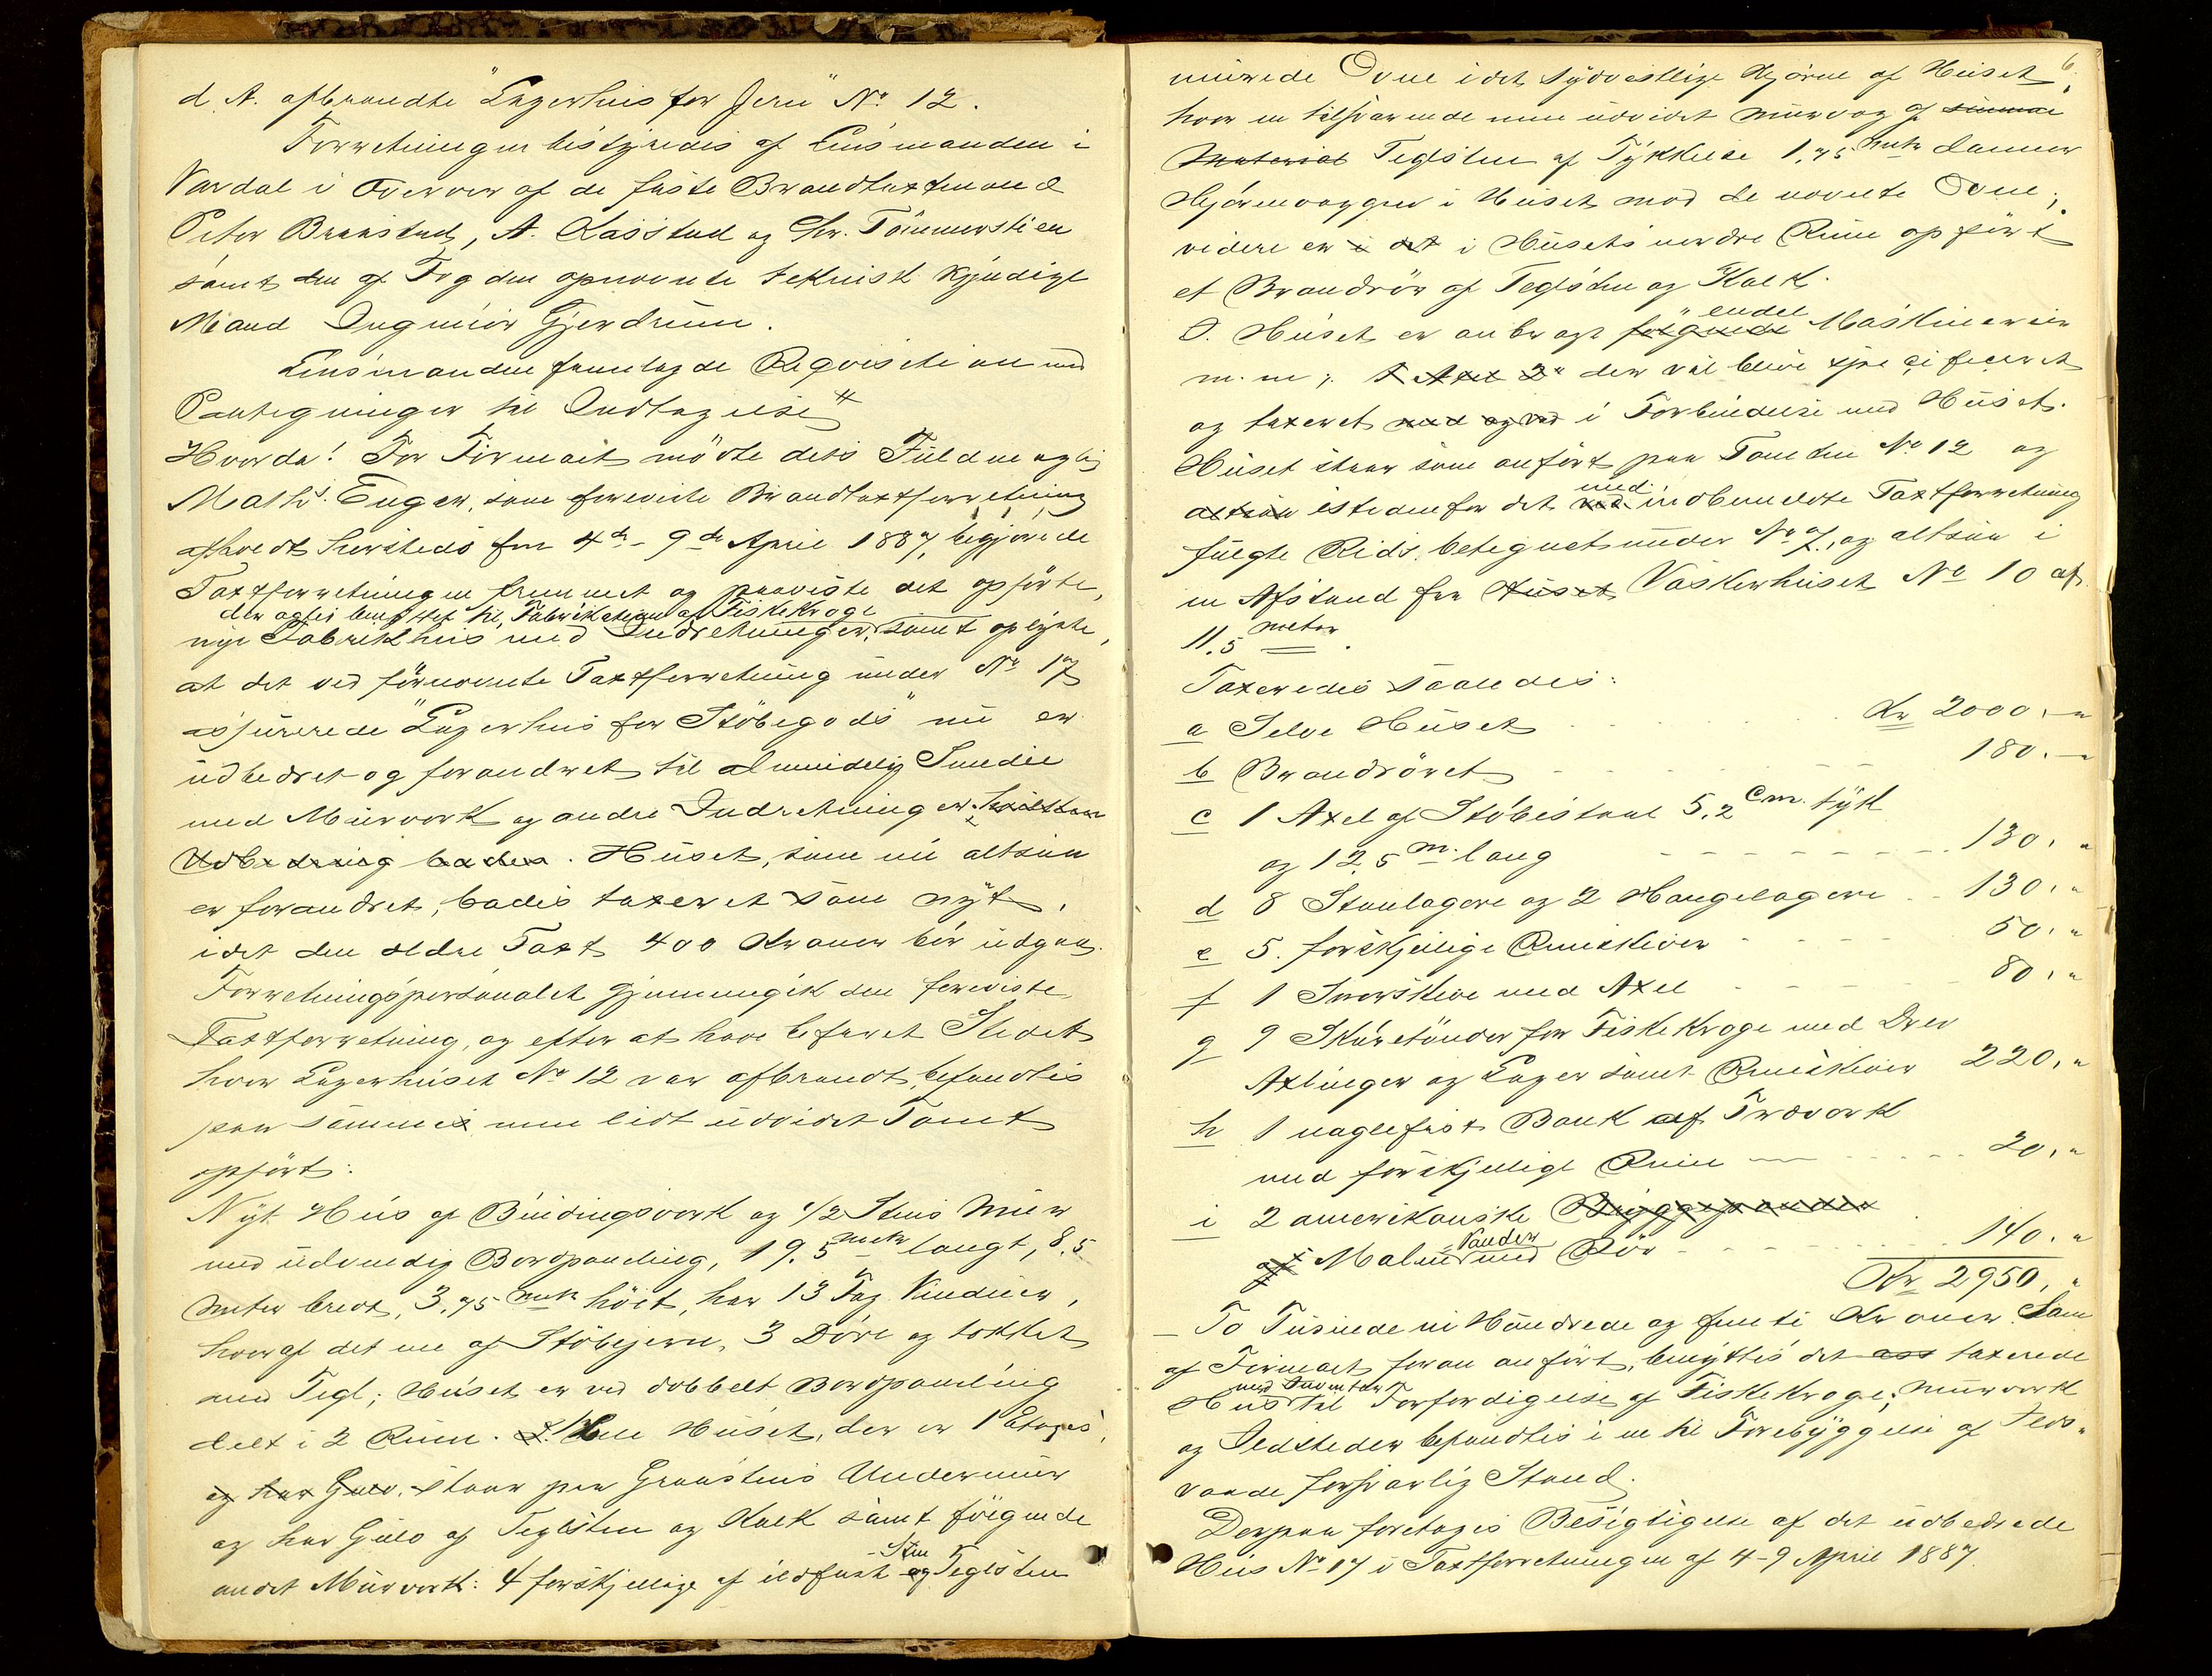 d. A. afbrændte "Lagerhus for Jern" No. 12.
Forretningen bestyredes af Lensmanden i
Vardal i Overvær af de faste Brandtaxtmænd
Peter Braastad, A. Kasstad og Chr. Tømmerstien
samt den af Fogden opnævnte teknisk kyndige
Mand Ingeniør Gjerdrum.
Lensmanden fremlagde Reqvisition med
Paategninger til Indtagelse
Hvorda! For Firmaet mødte dets Fuldmægtig
Maths. Enger, som foreviste Brandtaxtforretning
afholdt hersteds fra 4de - 9de April 1887, begjærede
Taxtforretningen fremmet og paaviste det opførte,
der agtes benyttet til Fabrikation af Fiskekroge
nye Fabrikhus med Indretninger, samt oplyste,
at det ved førnævnte Taxtforretning under No 17
assurerede "Lagerhus for Støbegods" nu er
udbedret og forandret til almindelig Smedie
med Murværk og andre Indretninger, hvilken
Udbedring bades. Huset, som nu altsaa
er forandret, bades taxeret som nyt,
idet den ældre Taxt 400 Kroner bør udgaa.
Forretningspersonalet gjennemgik den foreviste
Taxtforretning, og efter at have befaret Stedet
hvor Lagerhuset No 12 var afbrændt, befandtes
paa samme men lidt udvidet Tomt
opført:
Nyt Hus af Bindingsværk og 1/2 Stens Muur
med udvendig Bordpaneling, 19.5 metr langt, 8.5
meter bredt, 3.75 metr höit, har 13 Fag Vinduer,
hvoraf det ene af Støbejern, 3 Döre og tækket
med Tegl; Huset er ved dobbelt Bordpaneling
delt i 2 Rum. Hele Huset, der er 1 Etages,
og har Gulv, staar paa Graastens Undermuur
og har Gulv af Teglsten og Kalk samt følgende
andet Murværk: 4 forskjellige af ildfast Sten og Teglsten
6.
murede Ovne i det sydvestlige Hjørne af Huset,
hvor en tilsvarende men udvidet Murvæg af samme
Material Teglsten af Tykkelse 1.75 metr danner
Hjørnevæggen i Huset mod de nævnte Ovne;
videre er i det i Husets nordre Rum opført
et Brandrør af Teglsten og Kalk.
I Huset er anbragt følgende endel Maskinerier
m.m; 1 Axel 2" der vil blive specificeret
og taxeret med og ved i Forbindelse med Huset.
Huset staar som anført paa Tomten No 12 og
altsaa istedenfor det ved med indbemeldte Taxtforretning
fulgte Rids betegnet under No 7, og altsaa i
en Afstand fra Huset Vaskerhuset No 10 af
11.5 meter.
Taxeredes saaledes:
a Selve Huset Kr 2000. "
b Brandrøret 180. "
c 1 Axel af Støbestaal 5.2 Cm. tyk
og 12.5 m. lang 130. "
d 8 Staalagere og 2 Hængelagere 130. "
e 5. forskjellige Remskiver 50. "
f 1 Snorskive med Axel 80. "
g 9 Skuretønder for Fiskekroge med Drev
Axlinger og Lager samt Remskiver 220. "
h 1 naglefast Bænk af Træværk
med forskjellige Rum 20. "
i 2 amerikanske Bryggepander
af Malm Pander med Rør 140. "
Kr 2950. "
To Tusinde ni Hundrede og femti Kroner. Som
af Firmaet foran anført, benyttes det ass taxerede
Hus med Inventar til Forfærdigelse af Fiskekroge; Murværk
og Ildsteder befandtes i en til Forebyggelse af Ilds-
vaade forsvarlig Stand.
Derpaa foretoges Besigtigelse af det udbedrede
Hus No 17 i Taxtforretningen af 4-9 April 1887.